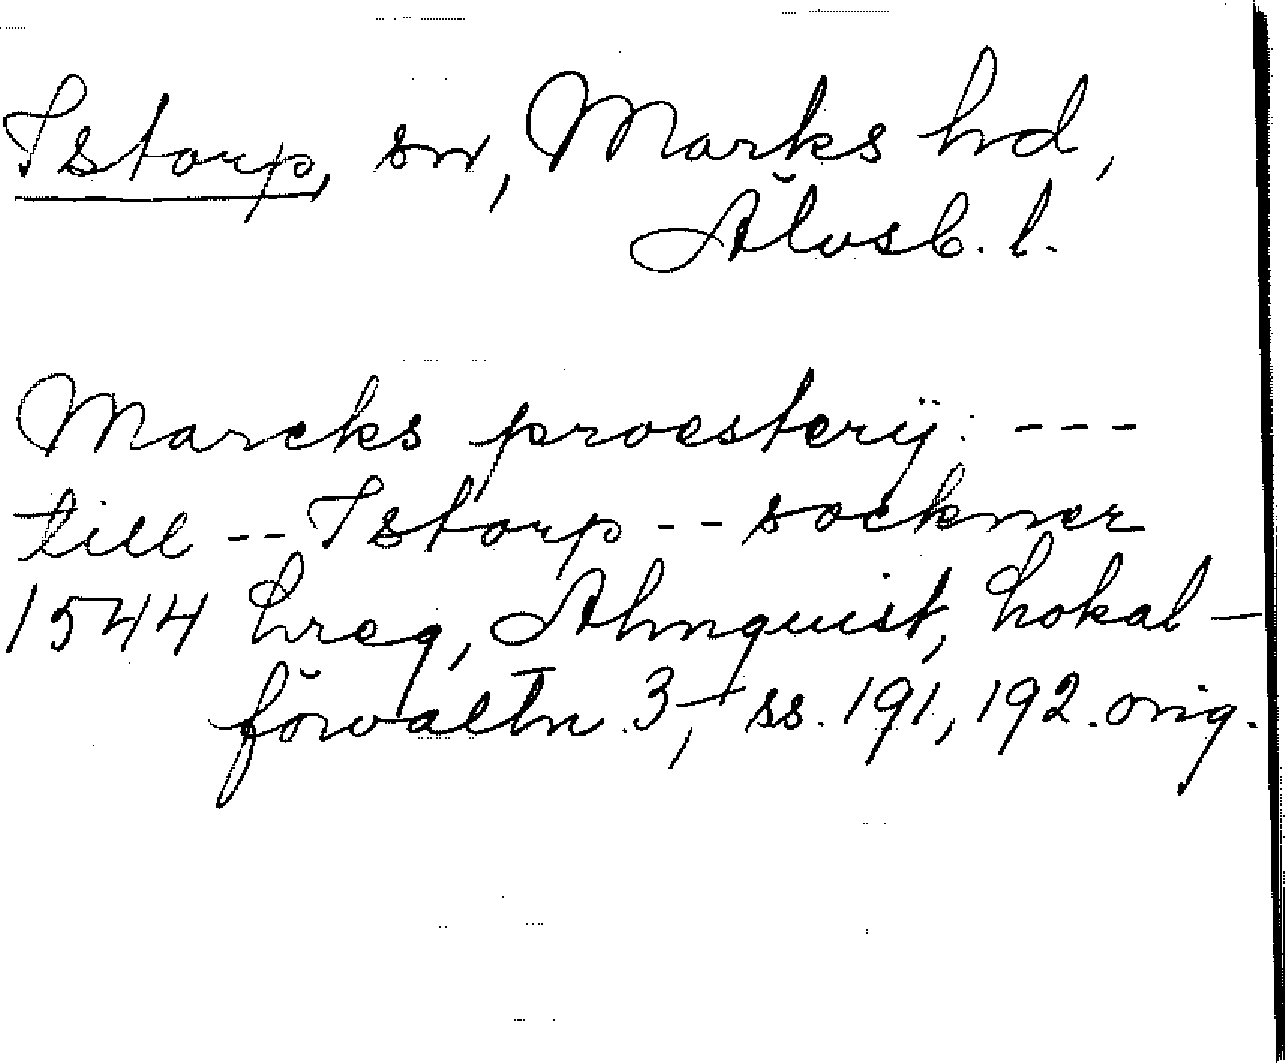 Istorp, sn, Marks hd,
Älvsb. l.
Marcks proesterij: ---
till -- Istorp -- sockner
1544 Lreg, Almquist, Lokal-
förvaltn. 3, ss. 191, 192. orig.